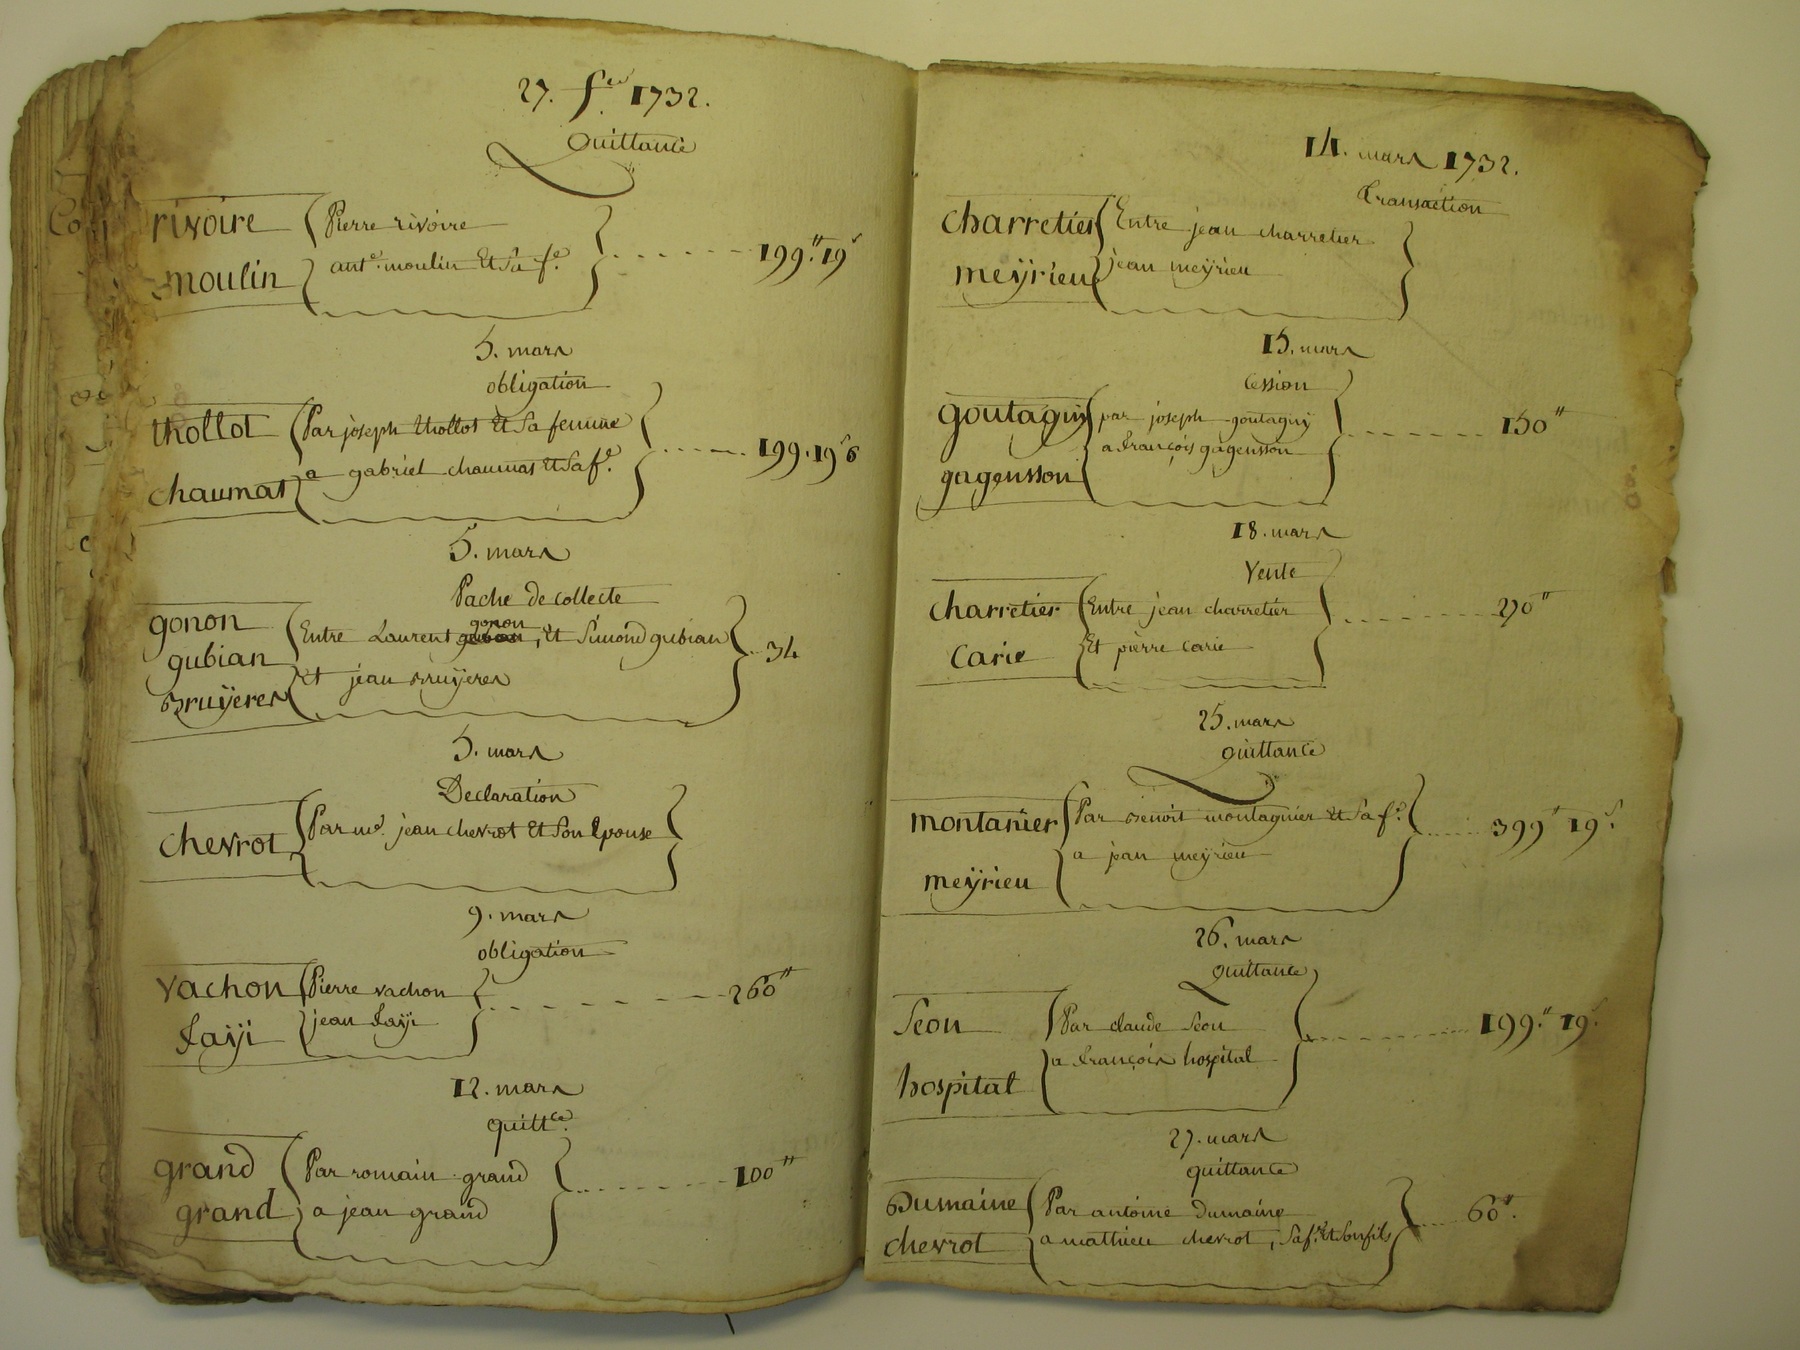 27. f^er 1732.
Quittance
rivoire Pierre rivoire
moulin ant^e. moulin Et Sa f^e. 199.# 19^s
5. mars
obligation
thollot Par joseph thollot Et Sa femme
chaumat a gabriel chaumat Et Sa f^e. 199. 19^s 6
5. mars
Pache de collecte
gonon
gubian Entre Laurent gonon, Et Simond gubian 34
Bruÿeres Et jean Bruÿeres
5. mars
Declaration
chevrot Par m^e. jean chevrot Et Son Epouse
9. mars
obligation
vachon Pierre vachon
faÿi jean faÿi 260#
12. mars
quitt^ce.
grand Par romain grand
grand a jean grand 100#
14. mars 1732.
transaction
charretier Entre jean charretier
meÿrieu jean meÿrieu
15. mars
Cession
goutagny par joseph goutagny 150#
gagensson a françois gagensson
18. mars
Vente
charretier Entre jean charretier 270#
Carie Et pierre Carie
25. mars
quittance
montanier Par Benoit montagnier Et Sa f^e. 399# 19^s.
meÿrieu a jean meÿrieu
26. mars
quittance
Seon Par claude Seon 199.# 19^s.
hospital a françois hospital
27. mars
quittance
Dumaine Par antoine Dumaine 60#.
chevrot a mathieu chevrot, Sa f^e. Et Son fils